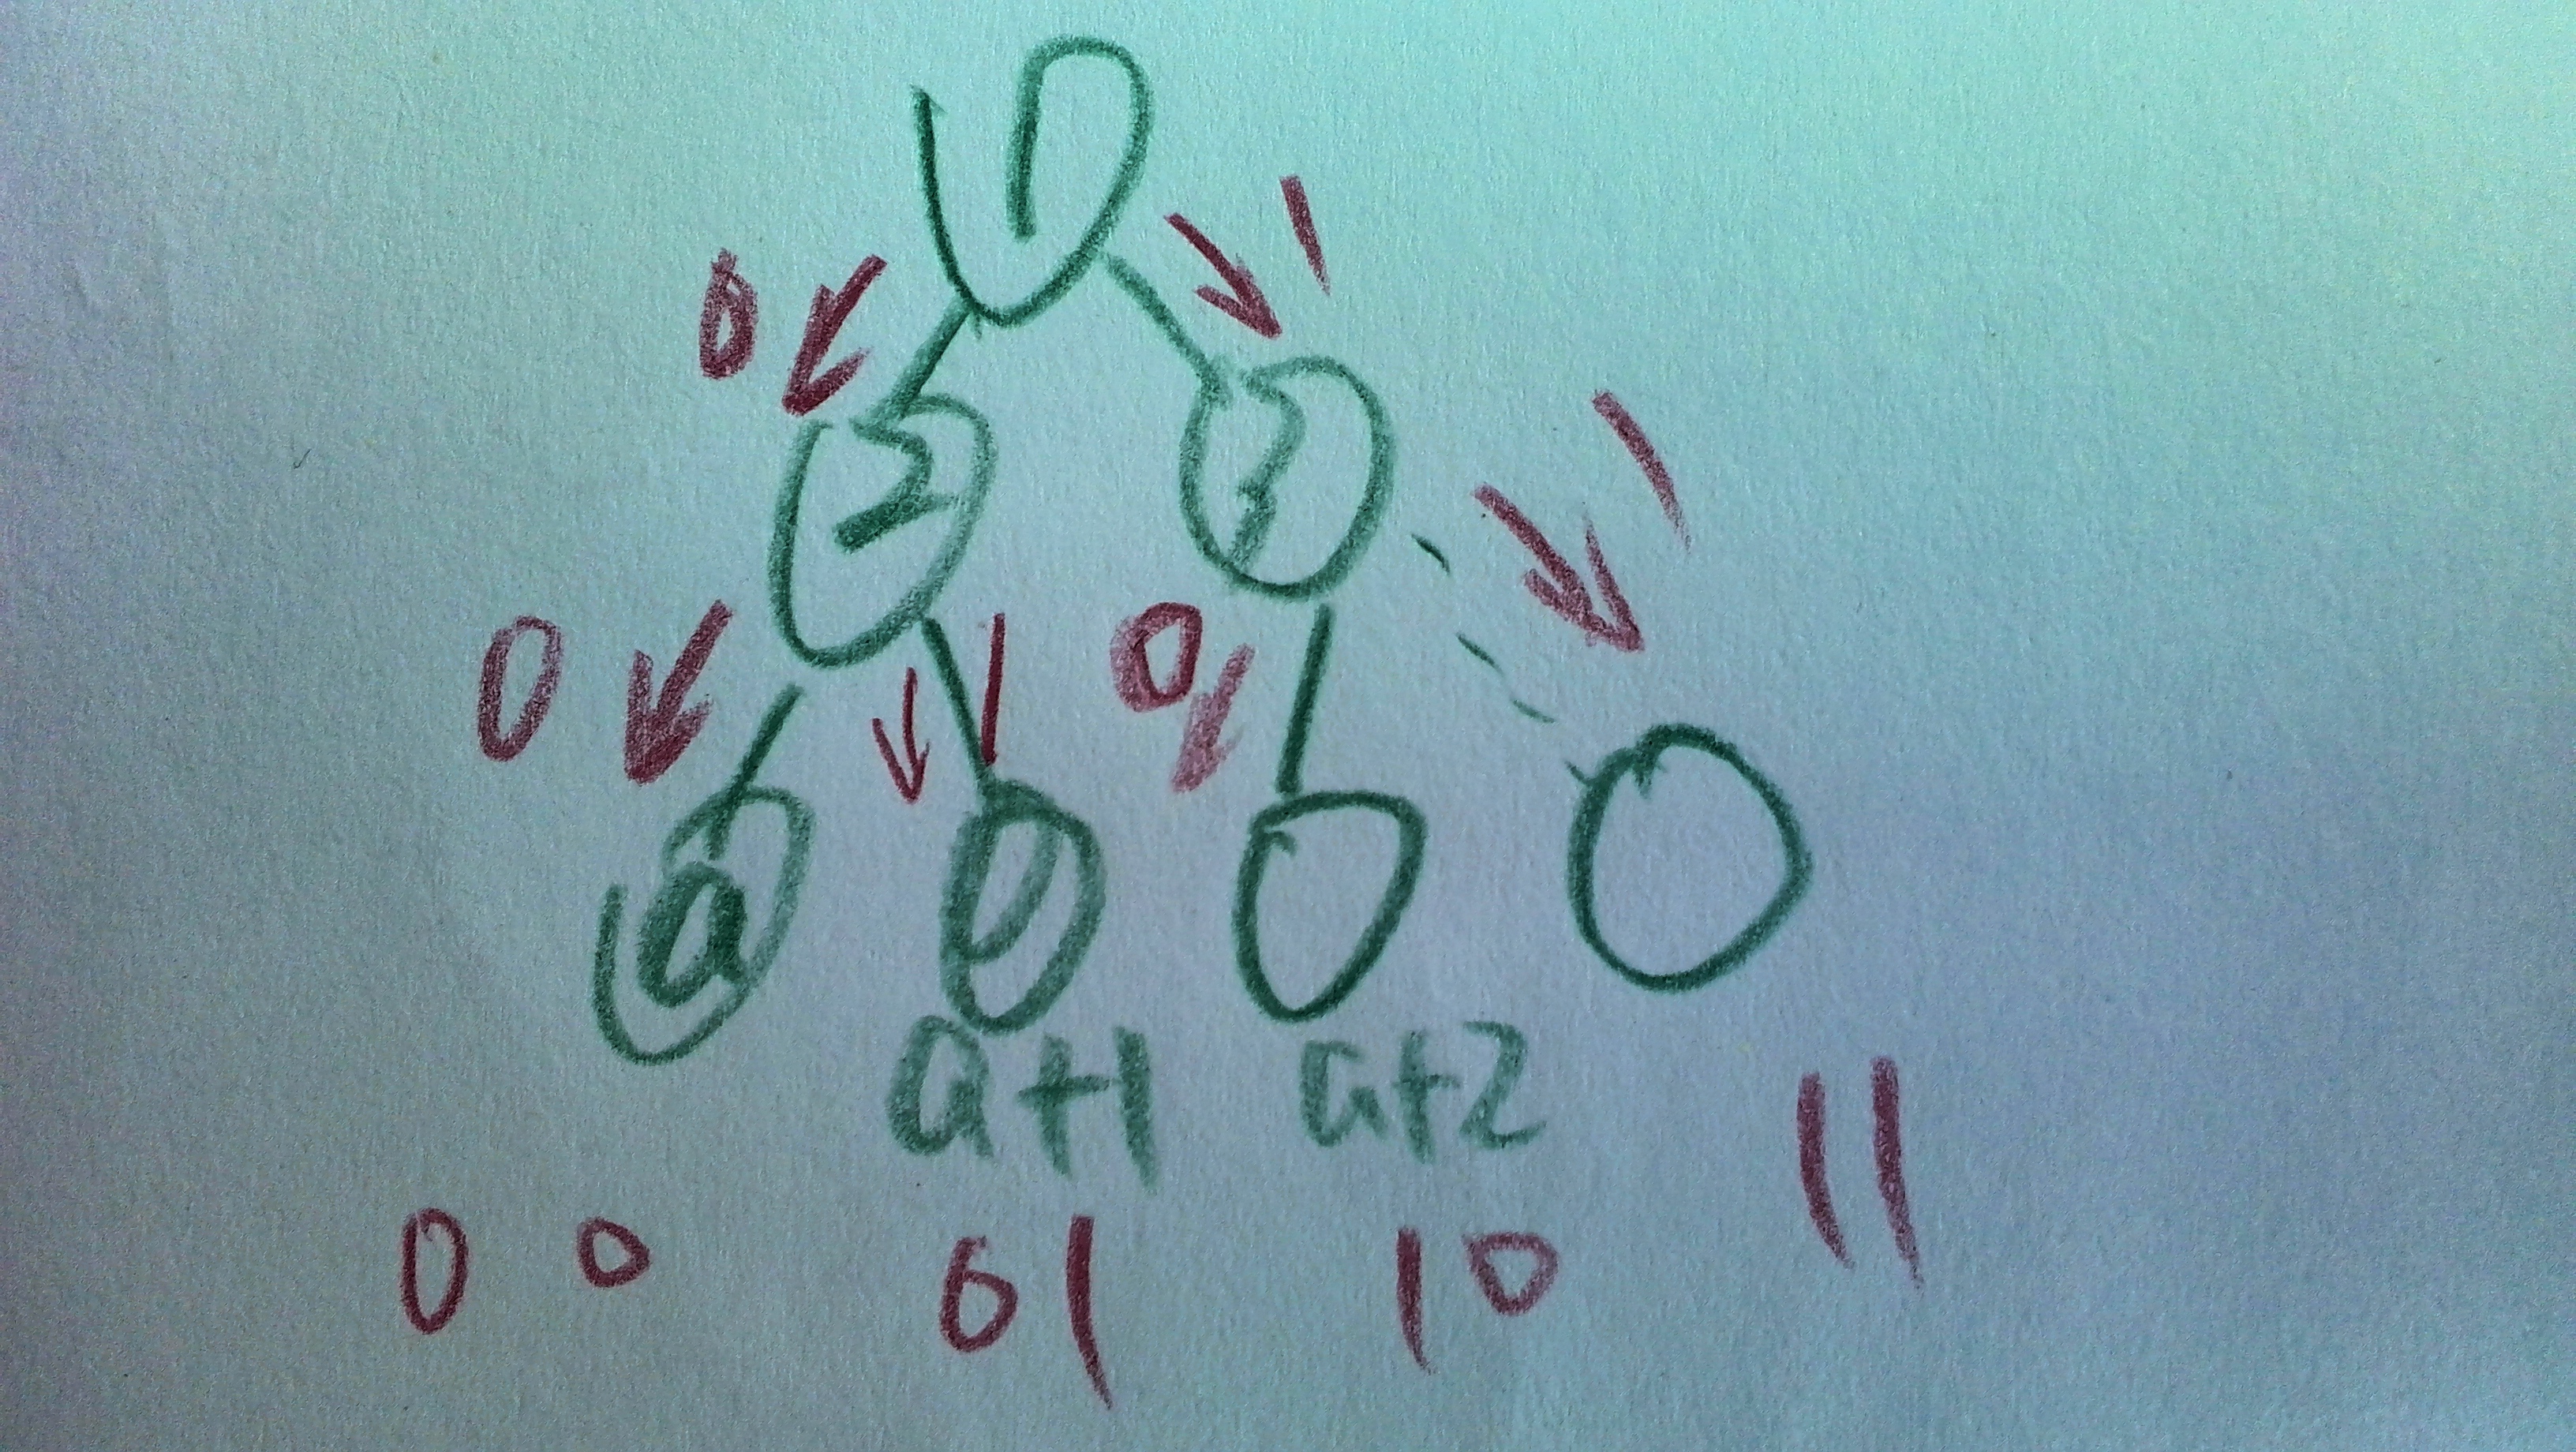 1
0 1
2 3
1
0 1 0
a
a+1 a+2
00 01 10 11